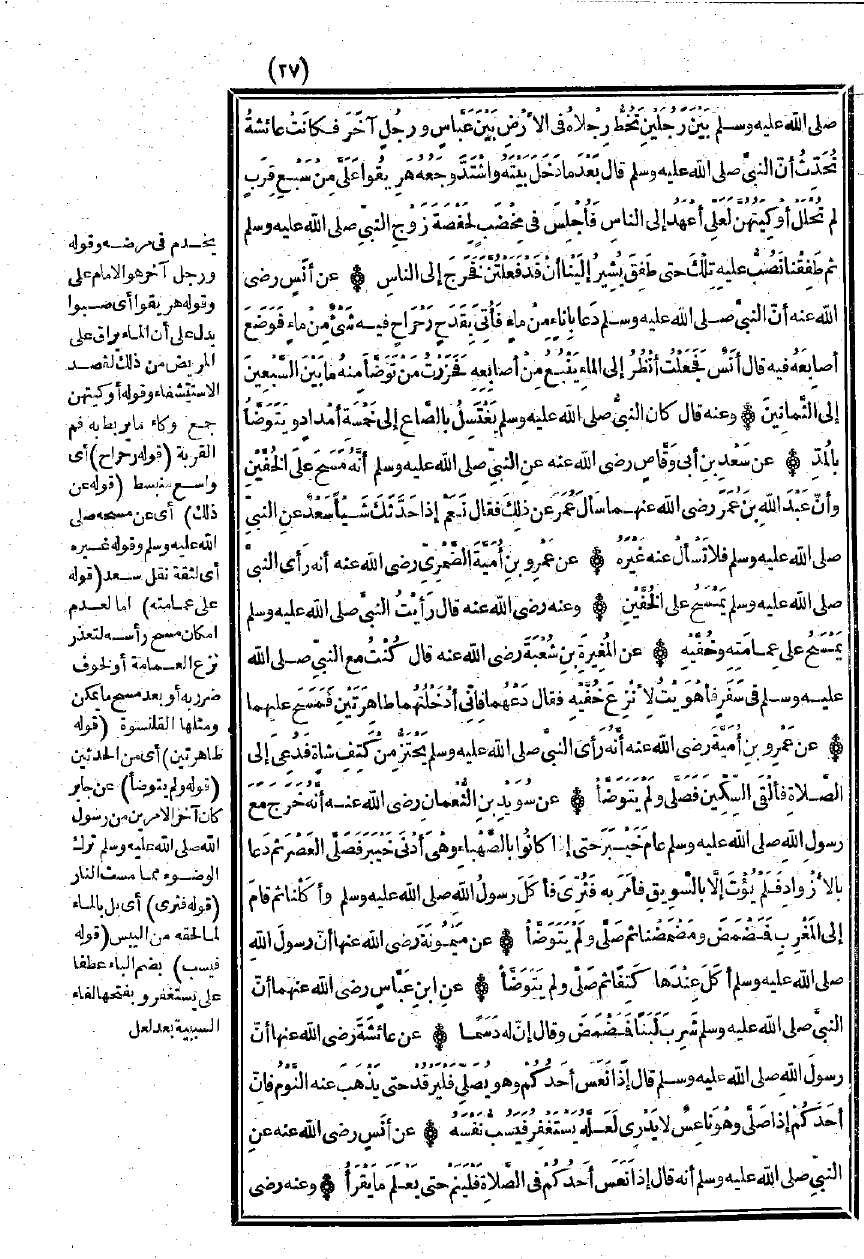 (٢٧)
صلى الله عليه وسلم بَيْنَ رَجُلَيْنِ تَخُطُّ رِجْلَاهُ فى الأَرْضِ بَيْنَ عَبَّاسٍ ورجُلٍ آخَرَ فكانَتْ عائشةُ
تُحَدِّثُ أنّ النبىَّ صلى الله عليه وسلم قال بَعْدَما دَخَلَ بيْتَهُ واشْتَدَّ وجَعُهُ هَرِيقُوا عَلَىَّ مِنْ سَبْعِ قِرَبٍ
لم تُحْلَلْ أَوْكِيَتُهُنَّ لَعَلِّى أَعْهَدُ إلى الناسِ فَأُجْلِسَ فى مِخْضَبٍ لِحَفْصَةَ زَوْجِ النبىِّ صلى الله عليه وسلم
ثم طَفِقْنا نَصُبُّ عليه تِلْكَ حتى طَفِقَ يُشِيرُ إِلَيْنا أنْ قَدْ فَعَلْتُنَّ فَخَرَجَ إلى الناسِ ۞ عن أنَسٍ رضى
الله عنه أنّ النبىَّ صلى الله عليه وسلم دَعا بإناءٍ مِنْ ماءٍ فَأُتِىَ بِقَدَحٍ رَحْرَاحٍ فيه شَىْءٌ مِنْ ماءٍ فَوَضَعَ
أصابِعَهُ فيه قال أنَسٌ فَجَعَلْتُ أَنْظُرُ إلى الماءِ يَنْبُعُ مِنْ أصابِعِهِ فَحَزَرْتُ مَنْ تَوَضَّأَ منه ما بَيْنَ السَّبْعِينَ
إلى الثَّمانِينَ ۞ وعنه قال كان النبىُّ صلى الله عليه وسلم يَغْتَسِلُ بالصَّاعِ إلى خَمْسَةِ أَمْدادٍ ويَتَوَضَّأُ
بالمُدِّ ۞ عن سَعْدِ بنِ أبى وَقَّاصٍ رضى الله عنه عنِ النبىِّ صلى الله عليه وسلم أنَّهُ مَسَحَ على الخُفَّيْنِ
وأنّ عَبْدَ الله بنَ عُمَرَ رضى الله عنهما سأل عُمَرَ عن ذلِكَ فقال نَعَمْ إذا حَدَّثَكَ شَيْأً سَعْدٌ عنِ النبىِّ
صلى الله عليه وسلم فلا تَسْأَلْ عنه غَيْرَهُ ۞ عن عَمْرِو بنِ أُمَيَّةَ الضَّمْرِىِّ رضى الله عنه أنه رَأَى النبىَّ
صلى الله عليه وسلم يَمْسَحُ على الخُفَّيْنِ ۞ وعنه رضى الله عنه قال رَأَيْتُ النبىَّ صلى الله عليه وسلم
يَمْسَحُ على عِمامَتِهِ وخُفَّيْهِ ۞ عن المُغِيرَةِ بنِ شُعْبَةَ رضى الله عنه قال كُنْتُ مع النبىِّ صلى الله
عليه وسلم فى سَفَرٍ فأهْوَيْتُ لأَنْزِعَ خُفَّيْهِ فقال دَعْهُما فإنِّى أَدْخَلْتُهُما طاهِرَتَيْنِ فَمَسَحَ عليهما
۞ عن عَمْرِو بنِ أُمَيَّةَ رضى الله عنه أنَّهُ رَأَى النبىَّ صلى الله عليه وسلم يَحْتَزُّ مِنْ كَتِفِ شاةٍ فَدُعِىَ إلى
الصَّلاةِ فألْقَى السِّكِّينَ فَصَلَّى ولَمْ يَتَوَضَّأْ ۞ عن سُوَيْدِ بنِ النُّعْمانِ رضى الله عنه أنَّهُ خَرَجَ مع
رسولِ الله صلى الله عليه وسلم عامَ خَيْبَرَ حتى إذا كانُوا بالصَّهْباءِ وهى أَدْنَى خَيْبَرَ فَصَلَّى العَصْرَ ثم دَعا
بالأَزْوادِ فَلَمْ يُؤْتَ إلَّا بالسَّوِيقِ فأمَرَ به فَثُرِّىَ فأكَلَ رسولُ الله صلى الله عليه وسلم وأكَلْنا ثم قامَ
إلى المَغْرِبِ فَمَضْمَضَ ومَضْمَضْنا ثم صَلَّى ولَمْ يَتَوَضَّأْ ۞ عن مَيْمُونَةَ رضى الله عنها أنّ رسولَ الله
صلى الله عليه وسلم أكَلَ عِنْدَها كَتِفًا ثم صَلَّى ولم يَتَوَضَّأْ ۞ عنِ ابنِ عَبَّاسٍ رضى الله عنهما أنّ
النبىَّ صلى الله عليه وسلم شَرِبَ لَبَنًا فَمَضْمَضَ وقال إنّ له دَسَمًا ۞ عن عائشَةَ رضى الله عنها أنّ
رسولَ الله صلى الله عليه وسلم قال إذا نَعَسَ أحَدُكُمْ وهو يُصَلِّى فَلْيَرْقُدْ حتى يَذْهَبَ عنه النَّوْمُ فإنّ
أحَدَكُمْ إذا صَلَّى وهُوَ ناعِسٌ لا يَدْرِى لَعَلَّهُ يَسْتَغْفِرُ فَيَسُبَّ نَفْسَهُ ۞ عن أنَسٍ رضى الله عنه عنِ
النبىِّ صلى الله عليه وسلم أنه قال إذا نَعَسَ أحَدُكُمْ فى الصَّلاةِ فَلْيَنَمْ حتى يَعْلَمَ ما يَقْرَأُ ۞ وعنه رضى
يخدم فى مرضه وقوله
ورجل آخر هو الامام على
وقوله هريقوا أى صبوا
يدل على أن الماء يراق على
المريض من ذلك لقصد
الاستشفاء وقوله أوكيتهن
جمع وكاء ما يربط به فم
القربة (قوله رحراح) أى
واسع منبسط (قوله عن
ذلك) أى عن مسحه صلى
الله عليه وسلم وقوله غيره
أى لثقة نقل سعد (قوله
على عمامته) اما لعدم
امكان مسح رأسه لتعذر
نزع العمامة أو لخوف
ضرر به أو بعد مسح ما يمكن
ومثلها القلنسوة (قوله
طاهرتين) أى من الحدثين
(قوله ولم يتوضأ) عن جابر
كان آخر الامرين من رسول
الله صلى الله عليه وسلم ترك
الوضوء مما مست النار
(قوله فثرى) أى بل بالماء
لما لحقه من اليبس (قوله
فيسب) بضم الباء عطفا
على يستغفر و بفتحها لفاء
السببية بعد لعل